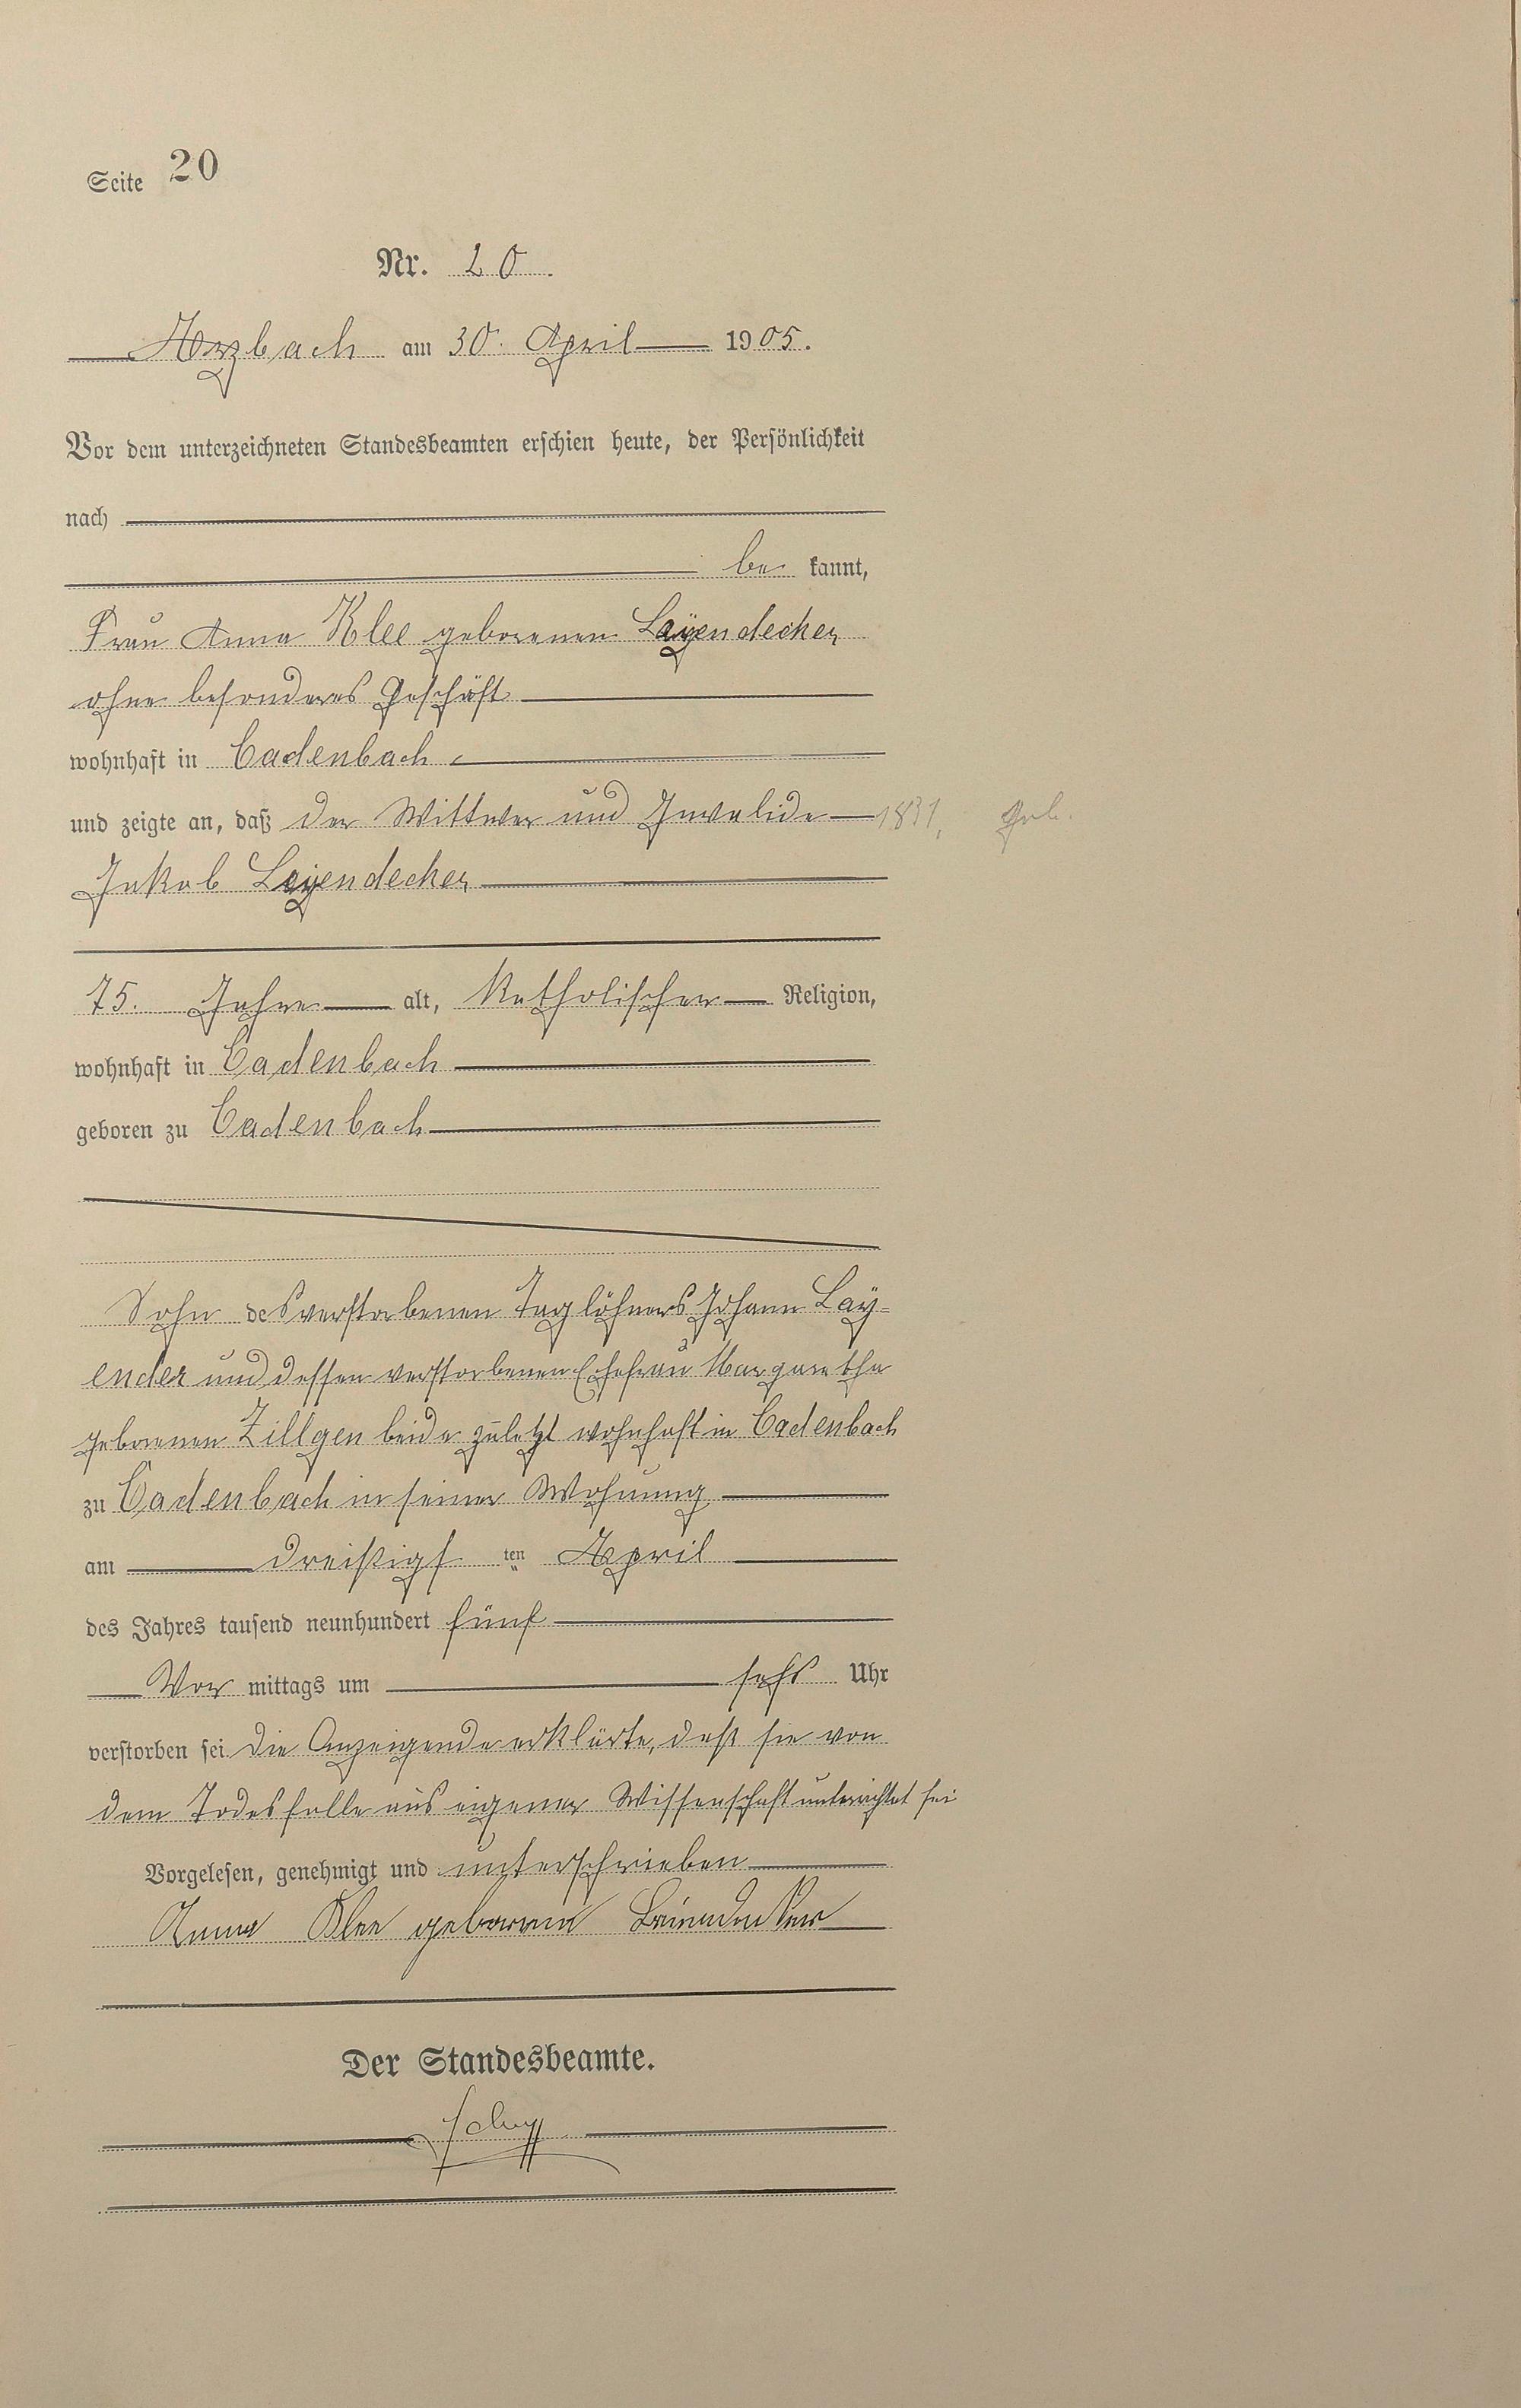 Seite 20
Nr. 20.
Arzbach am 30. April 1905.
Vor dem unterzeichneten Standesbeamten erschien heute, der Persönlichkeit
nach
be kannt,
Frau Anna Klee geborenen Layendecker
ohne besonderes Geschäft
wohnhaft in Cadenbach
und zeigte an, daß der Wittwer und Invalide 1831,
Jakob Leyendecker
75. Jahre alt, Katholischer Religion,
wohnhaft in Cadenbach
geboren zu Cadenbach
Sohn des verstorbenen Taglöhners Johann Lay-
ender und dessen verstorbenen Ehefrau Margaretha
geborenen Zillgen beide zuletzt wohnhaft in Cadenbach
zu Cadenbach in seiner Wohnung
am dreißigs ten April
des Jahres tausend neunhundert fünf
Vor mittags um sechs Uhr
verstorben sei. Die Anzeigende erklärte, daß sie von
dem Todesfalle aus eigener Wissenschaft unterrichtet sei
Vorgelesen, genehmigt und unterschrieben
Anna Klee geborene
Der Standesbeamte.